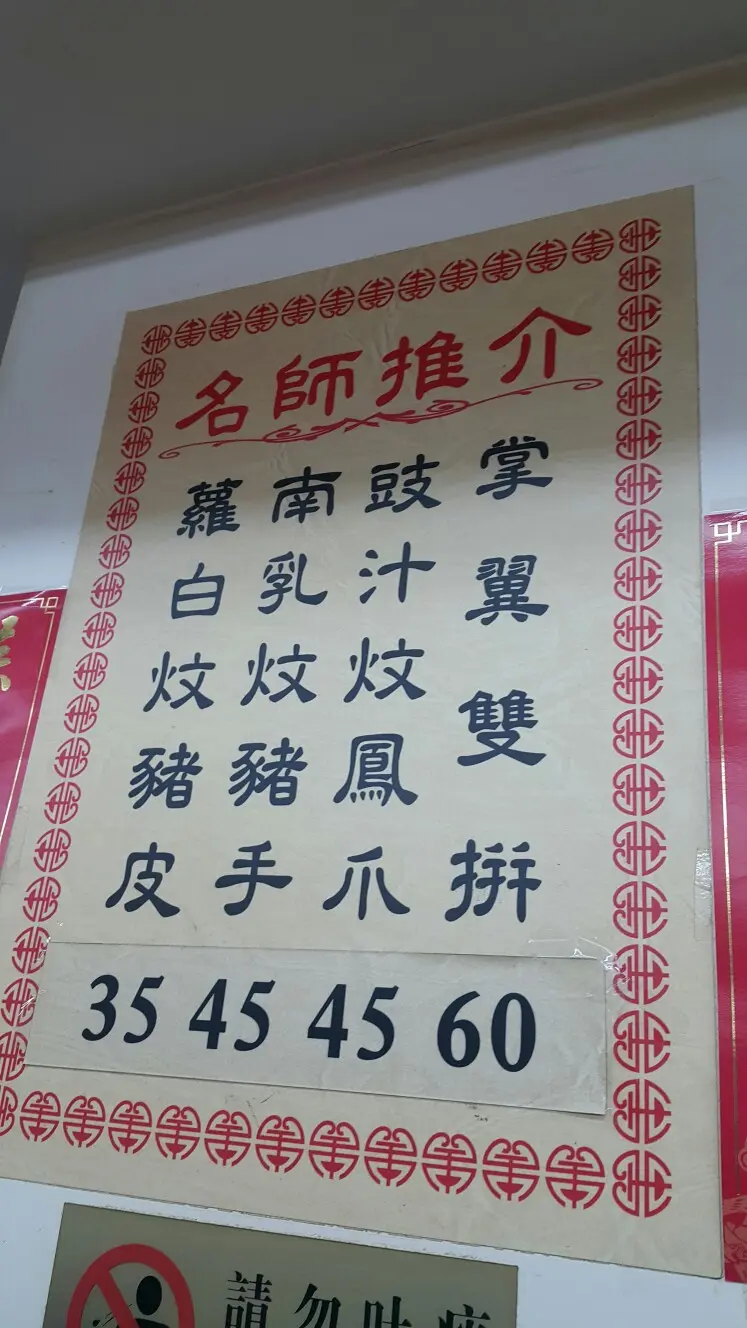 名師推介
掌翼雙拼
豉汁炆鳳爪
南乳炆豬手
蘿白炆豬皮
35 45 45 60
請勿吐痰